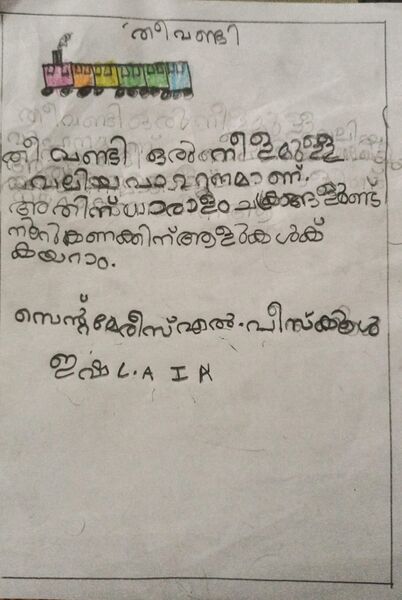 തീവണ്ടി
തീവണ്ടി ഒരു നീളമുള്ള
വലിയ വാഹനമാണ്.
അതിന് ധാരാളം ചക്രങ്ങളുണ്ട്
നൂറുകണക്കിന് ആളുകൾക്ക്
കയറാം.
സെന്റ് മേരീസ് എൽ.പി സ്കൂൾ
ഇഷ L.A I A